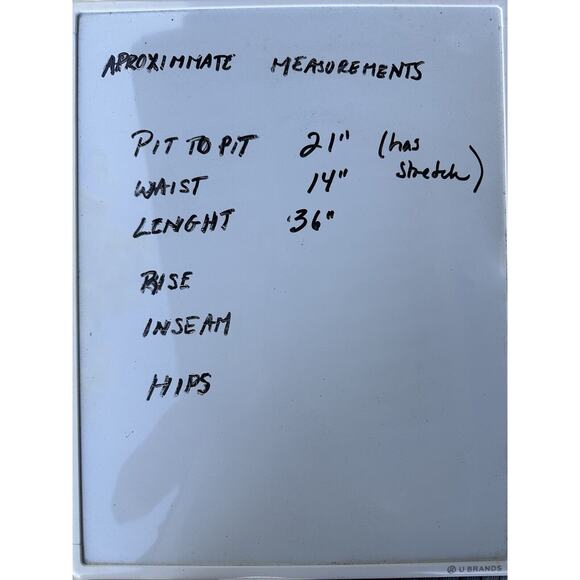 APROXIMMATE MEASUREMENTS
PIT TO PIT 21" (has stretch)
WAIST 14"
LENGHT 36"
RISE
INSEAM
HIPS
U BRANDS